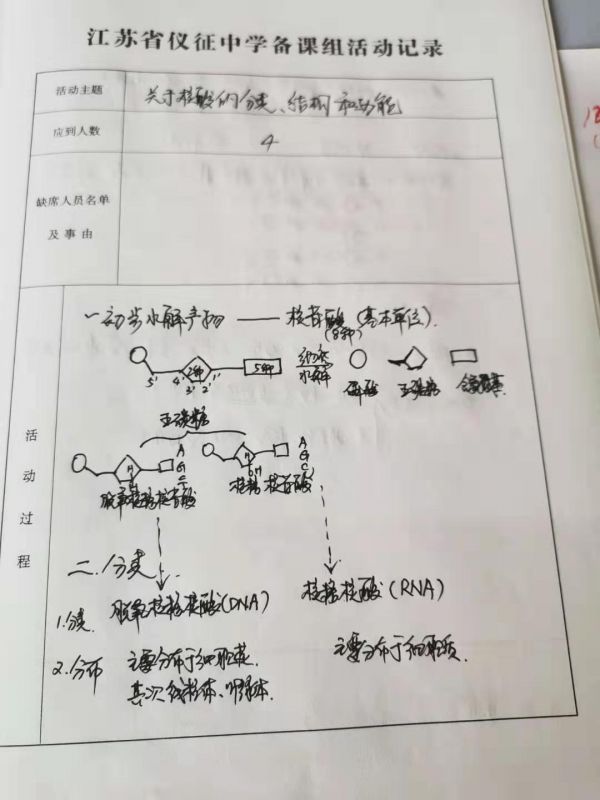 江苏省仪征中学备课组活动记录
活动主题 关于核酸的分类、结构和功能
应到人数 4
缺席人员名单
及事由
活动过程
一.初步水解产物 —— 核苷酸 (基本单位).
(8种)
5' 4' 3' 2' 1' 2种 5种 彻底水解 磷酸 五碳糖 含氮碱基
五碳糖
H A G C T
OH A G C
脱氧核糖核苷酸 核糖核苷酸
二.分类
1.分类. 脱氧核糖核酸(DNA) 核糖核酸(RNA)
2.分布 主要分布于细胞核. 主要分布于细胞质.
其次线粒体、叶绿体.